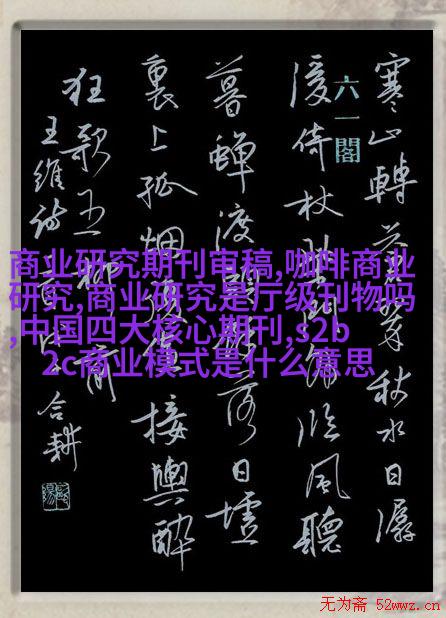 寒山轉蒼翠秋水日潺
湲倚杖柴門外臨風聽
暮蟬渡頭餘落日墟
裏上孤烟復值接輿醉
狂歌五柳前
王維詩
合耕
六一閣
商业研究期刊审稿,咖啡商业
研究,商业研究是厅级刊物吗
,中国四大核心期刊,s2b
2c商业模式是什么意思
无为斋 52wwz.cn